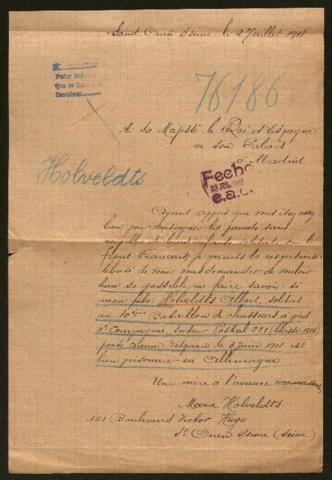 Saint Ouen s/seine le 2 Juillet 1918
76186
A sa Majesté le Roi d'Espagne
en son Palais
a Madrid
Holveldts
Fecho
e.a.c.
Ayant appris que vous étiez assez
bon pour renseigner les parents sans
nouvelle de leurs enfants soldats sur le
front Français je prends la respectueuse
liberté de venir vous demander de vouloir
bien si possible, me faire savoir si
mon fils, Holveldts Albert, soldat
au 10ème Bataillon de chasseurs à pied
Compagnie, secteur Postal 221
porté comme disparu le 3 juin 1918 est
bien prisonnier en Allemagne
Une mère à l'avance reconnaissante
Marie Holveldts
Boulevard Victor Hugo
St Ouen s/seine (Seine)